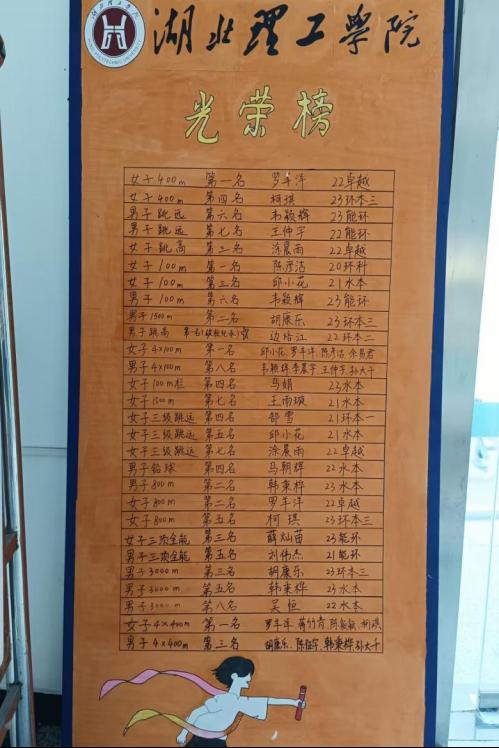 湖北理工学院
光荣榜
女子400m 第一名 罗车洋 22卓越
女子400m 第四名 柯琪 23环本三
男子跳远 第六名 韦颖辉 23能环
男子跳远 第七名 王仲宇 22能环
女子跳高 第三名 涂晨雨 22卓越
女子100m 第一名 陈彦洁 20环科
女子100m 第三名 邱小花 21水本
男子100m 第六名 韦颖辉 23能环
男子1500m 第二名 胡康乐 23环本三
男子跳高 第一名 边培江 22环本二
女子4×100m 第一名 邱小花、罗车洋、陈彦洁、余易君
男子4×100m 第八名 韦颖辉、李晨宇、王仲宇、孙大千
女子100m栏 第四名 马娟 23水本
女子1500m 第七名 王雨璇 21水本
女子三级跳远 第四名 郜雪 21环本一
女子三级跳远 第五名 邱小花 21水本
女子三级跳远 第七名 涂晨雨 22卓越
男子铅球 第四名 马朝辉 22水本
男子800m 第二名 韩秉桦 23水本
女子800m 第二名 罗车洋 22卓越
女子800m 第五名 柯琪 23环本三
女子三项全能 第三名 薛灿苗 23能环
男子三项全能 第五名 刘伟杰 21能环
男子3000m 第三名 胡康乐 23环本三
男子3000m 第五名 韩秉桦 23水本
男子3000m 第八名 吴恒 22水本
女子4×400m 第一名 罗车洋、蒋竹青、柯琪
男子4×400m 第三名 胡康乐、韩秉桦、孙大千